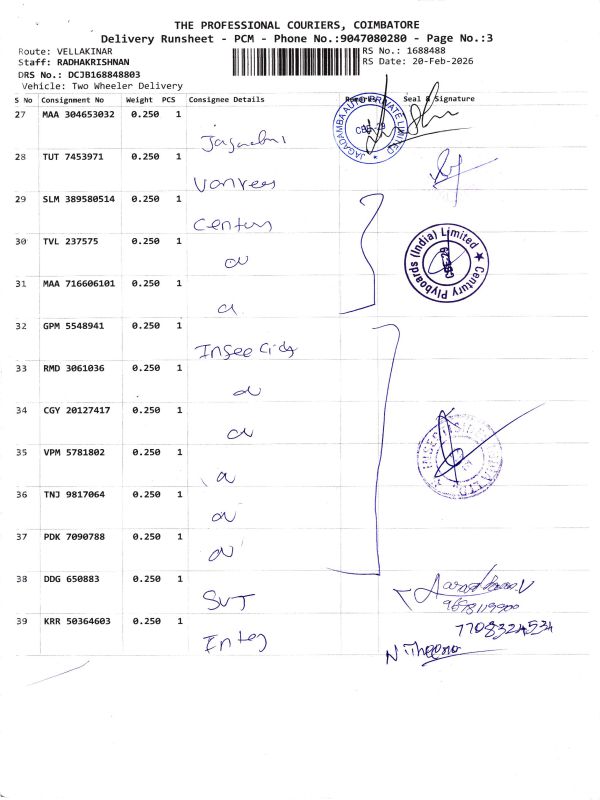 THE PROFESSIONAL COURIERS, COIMBATORE
Delivery Runsheet - PCM - Phone No.:9047080280 - Page No.:3
Route: VELLAKINAR
RS No.: 1688488
Staff: RADHAKRISHNAN
RS Date: 20-Feb-2026
DRS No.: DCJB168848803
Vehicle: Two Wheeler Delivery
S No Consignment No Weight PCS Consignee Details Remarks Seal & Signature
27 MAA 304653032 0.250 1
JAGADAMBA AUTO PRIVATE LIMITED
CBE-29
28 TUT 7453971 0.250 1
29 SLM 389580514 0.250 1
Century
30 TVL 237575 0.250 1
Century Plyboards (India) Limited
CBE-29
31 MAA 716606101 0.250 1
32 GPM 5548941 0.250 1
33 RMD 3061036 0.250 1
34 CGY 20127417 0.250 1
35 VPM 5781802 0.250 1
36 TNJ 9817064 0.250 1
37 PDK 7090788 0.250 1
38 DDG 650883 0.250 1
SVT
9678119900
39 KRR 50364603 0.250 1
7708324534